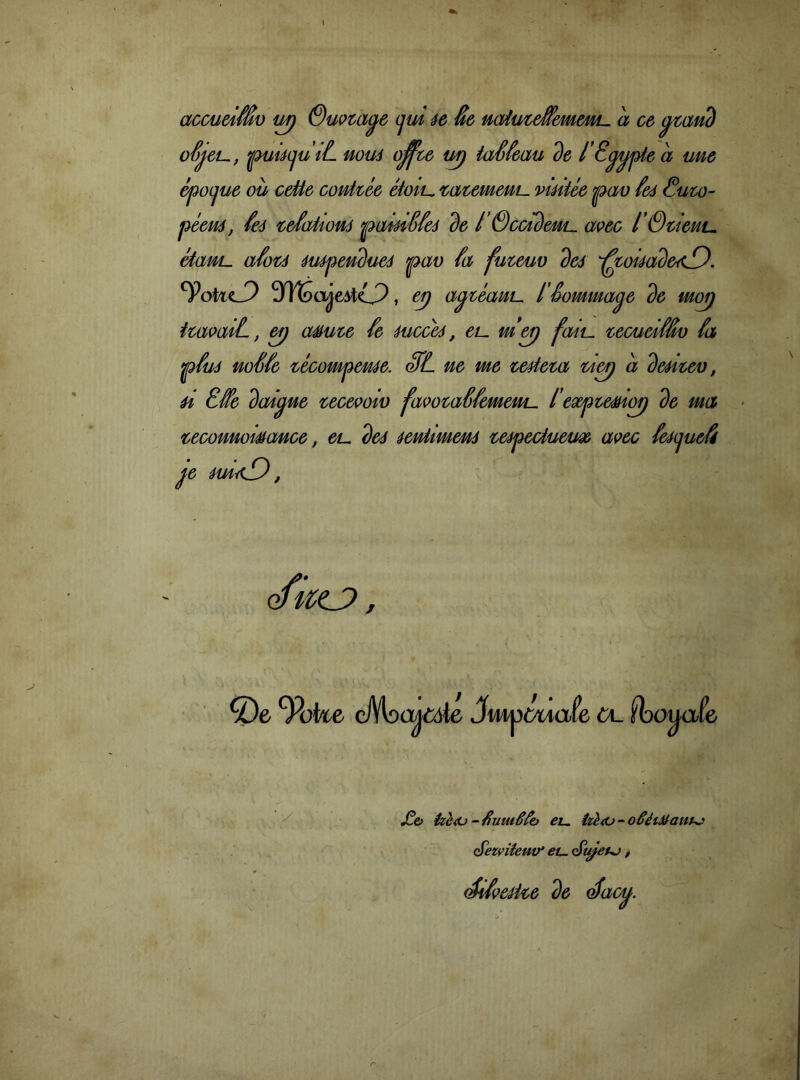 accueillir un Ouvrage qui se lie naturellement à ce grand
objet, puisqu'il nous offre un tableau de l'Égypte à une
époque où cette contrée étoit rarement visitée par les Euro-
péens, les relations paisibles de l'Occident avec l'Orient
étant alors suspendues par la fureur des Croisades.
Votre Majesté, en agréant l'hommage de mon
travail, en assure le succès, et m'en fait recueillir la
plus noble récompense. Il ne me restera rien à desirer,
si Elle daigne recevoir favorablement l'expression de ma
reconnoissance, et des sentimens respectueux avec lesquels
je suis,
Sire,
De Votre Majesté Impériale et Royale
Le très-humble et très-obéissant
Serviteur et Sujet,
Silvestre de Sacy.